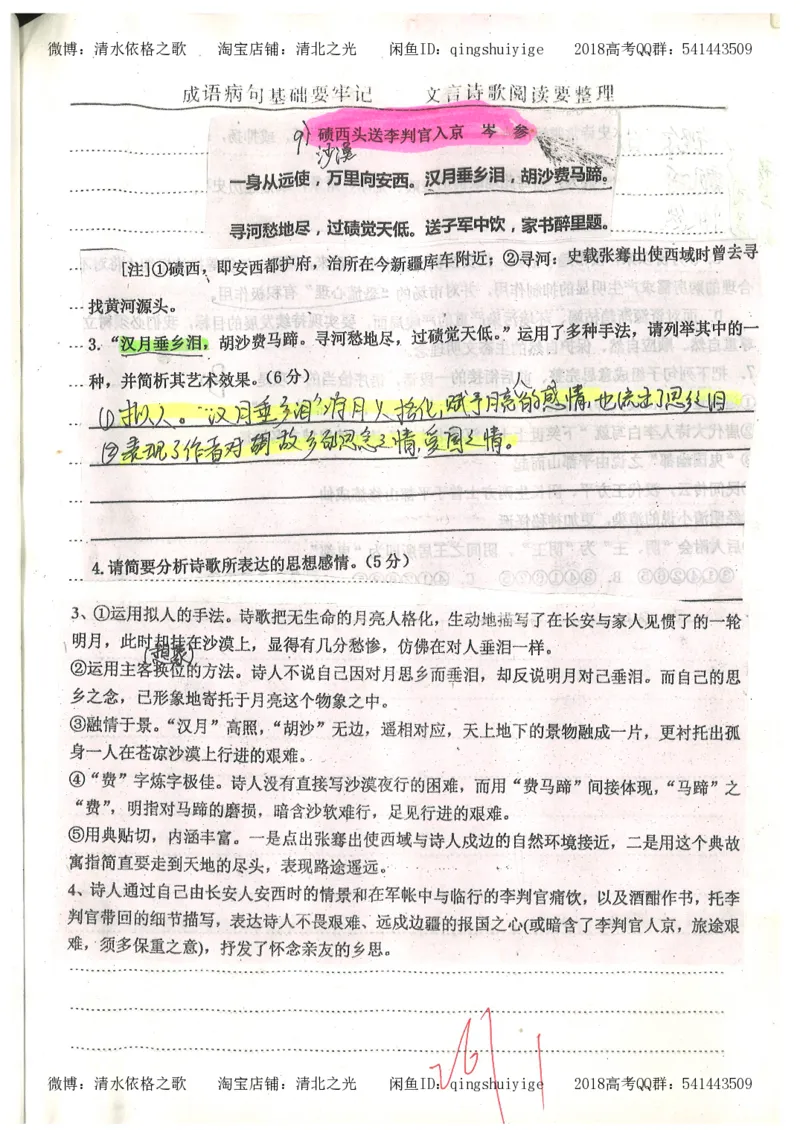 微博：清水依格之歌 淘宝店铺：清北之光 闲鱼ID：qingshuiyige 2018高考QQ群：541443509
成语病句基础要牢记 文言诗歌阅读要整理
9) 碛西头送李判官入京 岑 参
沙漠
一身从远使，万里向安西。汉月垂乡泪，胡沙费马蹄。
寻河愁地尽，过碛觉天低。送子军中饮，家书醉里题。
[注]①碛西，即安西都护府，治所在今新疆库车附近；②寻河：史载张骞出使西域时曾去寻
找黄河源头。
3. “汉月垂乡泪，胡沙费马蹄。寻河愁地尽，过碛觉天低。”运用了多种手法，请列举其中的一
种，并简析其艺术效果。(6分)
人
①拟人。“汉月垂乡泪”将月人格化，赋予月亮的感情，也流出了思乡泪
②表现了作者对胡故乡的思念之情，爱国之情。
4.请简要分析诗歌所表达的思想感情。（5分）
3、①运用拟人的手法。诗歌把无生命的月亮人格化，生动地描写了在长安与家人见惯了的一轮
明月，此时却挂在沙漠上，显得有几分愁惨，仿佛在对人垂泪一样。
②运用主客换位的方法。诗人不说自己因对月思乡而垂泪，却反说明月对己垂泪。而自己的思
乡之念，已形象地寄托于月亮这个物象之中。
③融情于景。“汉月”高照，“胡沙”无边，遥相对应，天上地下的景物融成一片，更衬托出孤
身一人在苍凉沙漠上行进的艰难。
④“费”字炼字极佳。诗人没有直接写沙漠夜行的困难，而用“费马蹄”间接体现，“马蹄”之
“费”，明指对马蹄的磨损，暗含沙软难行，足见行进的艰难。
⑤用典贴切，内涵丰富。一是点出张骞出使西域与诗人戍边的自然环境接近，二是用这个典故
寓指简直要走到天地的尽头，表现路途遥远。
4、诗人通过自己由长安人安西时的情景和在军帐中与临行的李判官痛饮，以及酒酣作书，托李
判官带回的细节描写，表达诗人不畏艰难、远戍边疆的报国之心(或暗含了李判官人京，旅途艰
难，须多保重之意)，抒发了怀念亲友的乡思。
微博：清水依格之歌 淘宝店铺：清北之光 闲鱼ID：qingshuiyige 2018高考QQ群：541443509